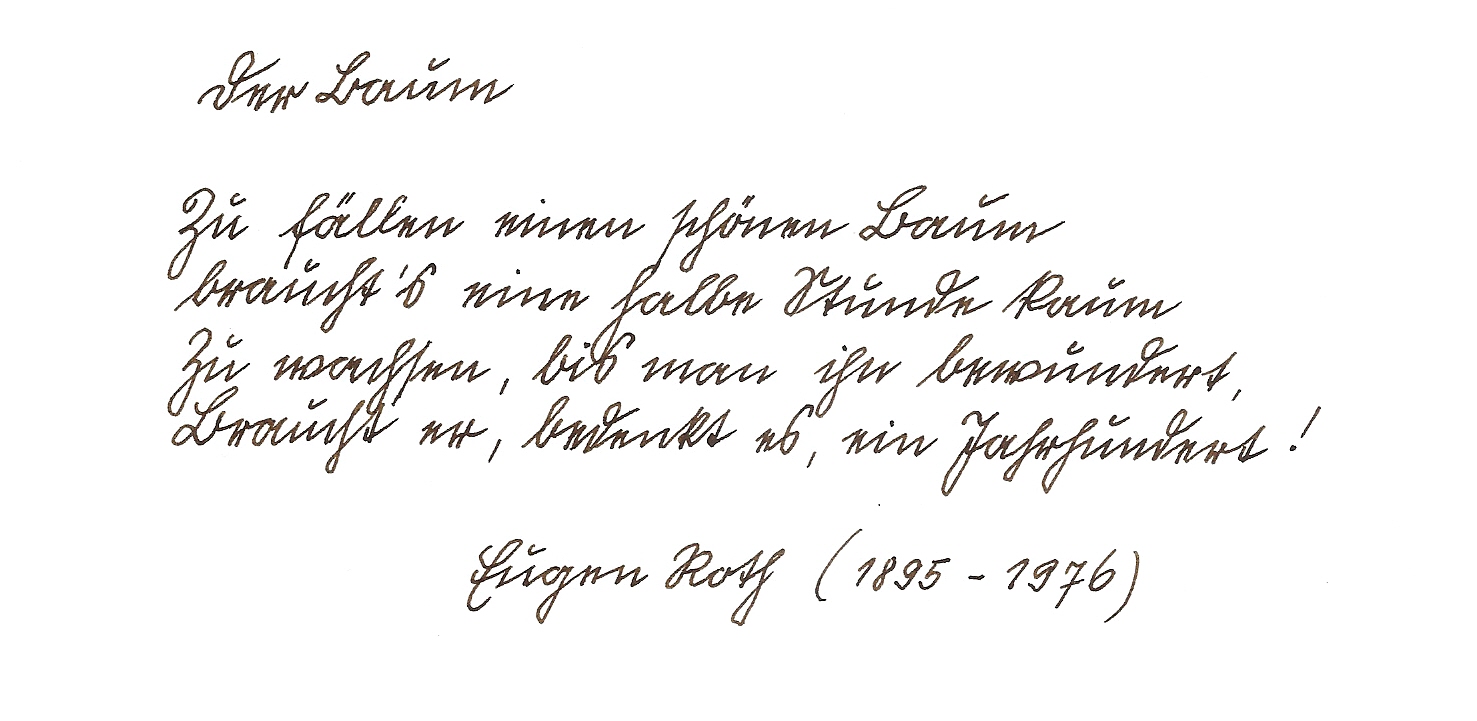 Der Baum
Zu fällen einen schönen Baum
braucht's eine halbe Stunde kaum
Zu wachsen, bis man ihn bewundert,
Braucht er, bedenkt es, ein Jahrhundert!
Eugen Roth (1895 - 1976)